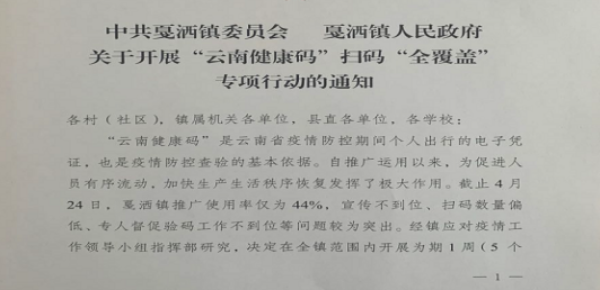 中共戛洒镇委员会 戛洒镇人民政府
关于开展“云南健康码”扫码“全覆盖”
专项行动的通知
各村（社区），镇属机关各单位，县直各单位，各学校：
“云南健康码”是云南省疫情防控期间个人出行的电子凭
证，也是疫情防控查验的基本依据。自推广运用以来，为促进人
员有序流动，加快生产生活秩序恢复发挥了极大作用。截止 4 月
24 日，戛洒镇推广使用率仅为 44%，宣传不到位、扫码数量偏
低、专人督促验码工作不到位等问题较为突出。经镇应对疫情工
作领导小组指挥部研究，决定在全镇范围内开展为期 1 周（5 个
— 1 —